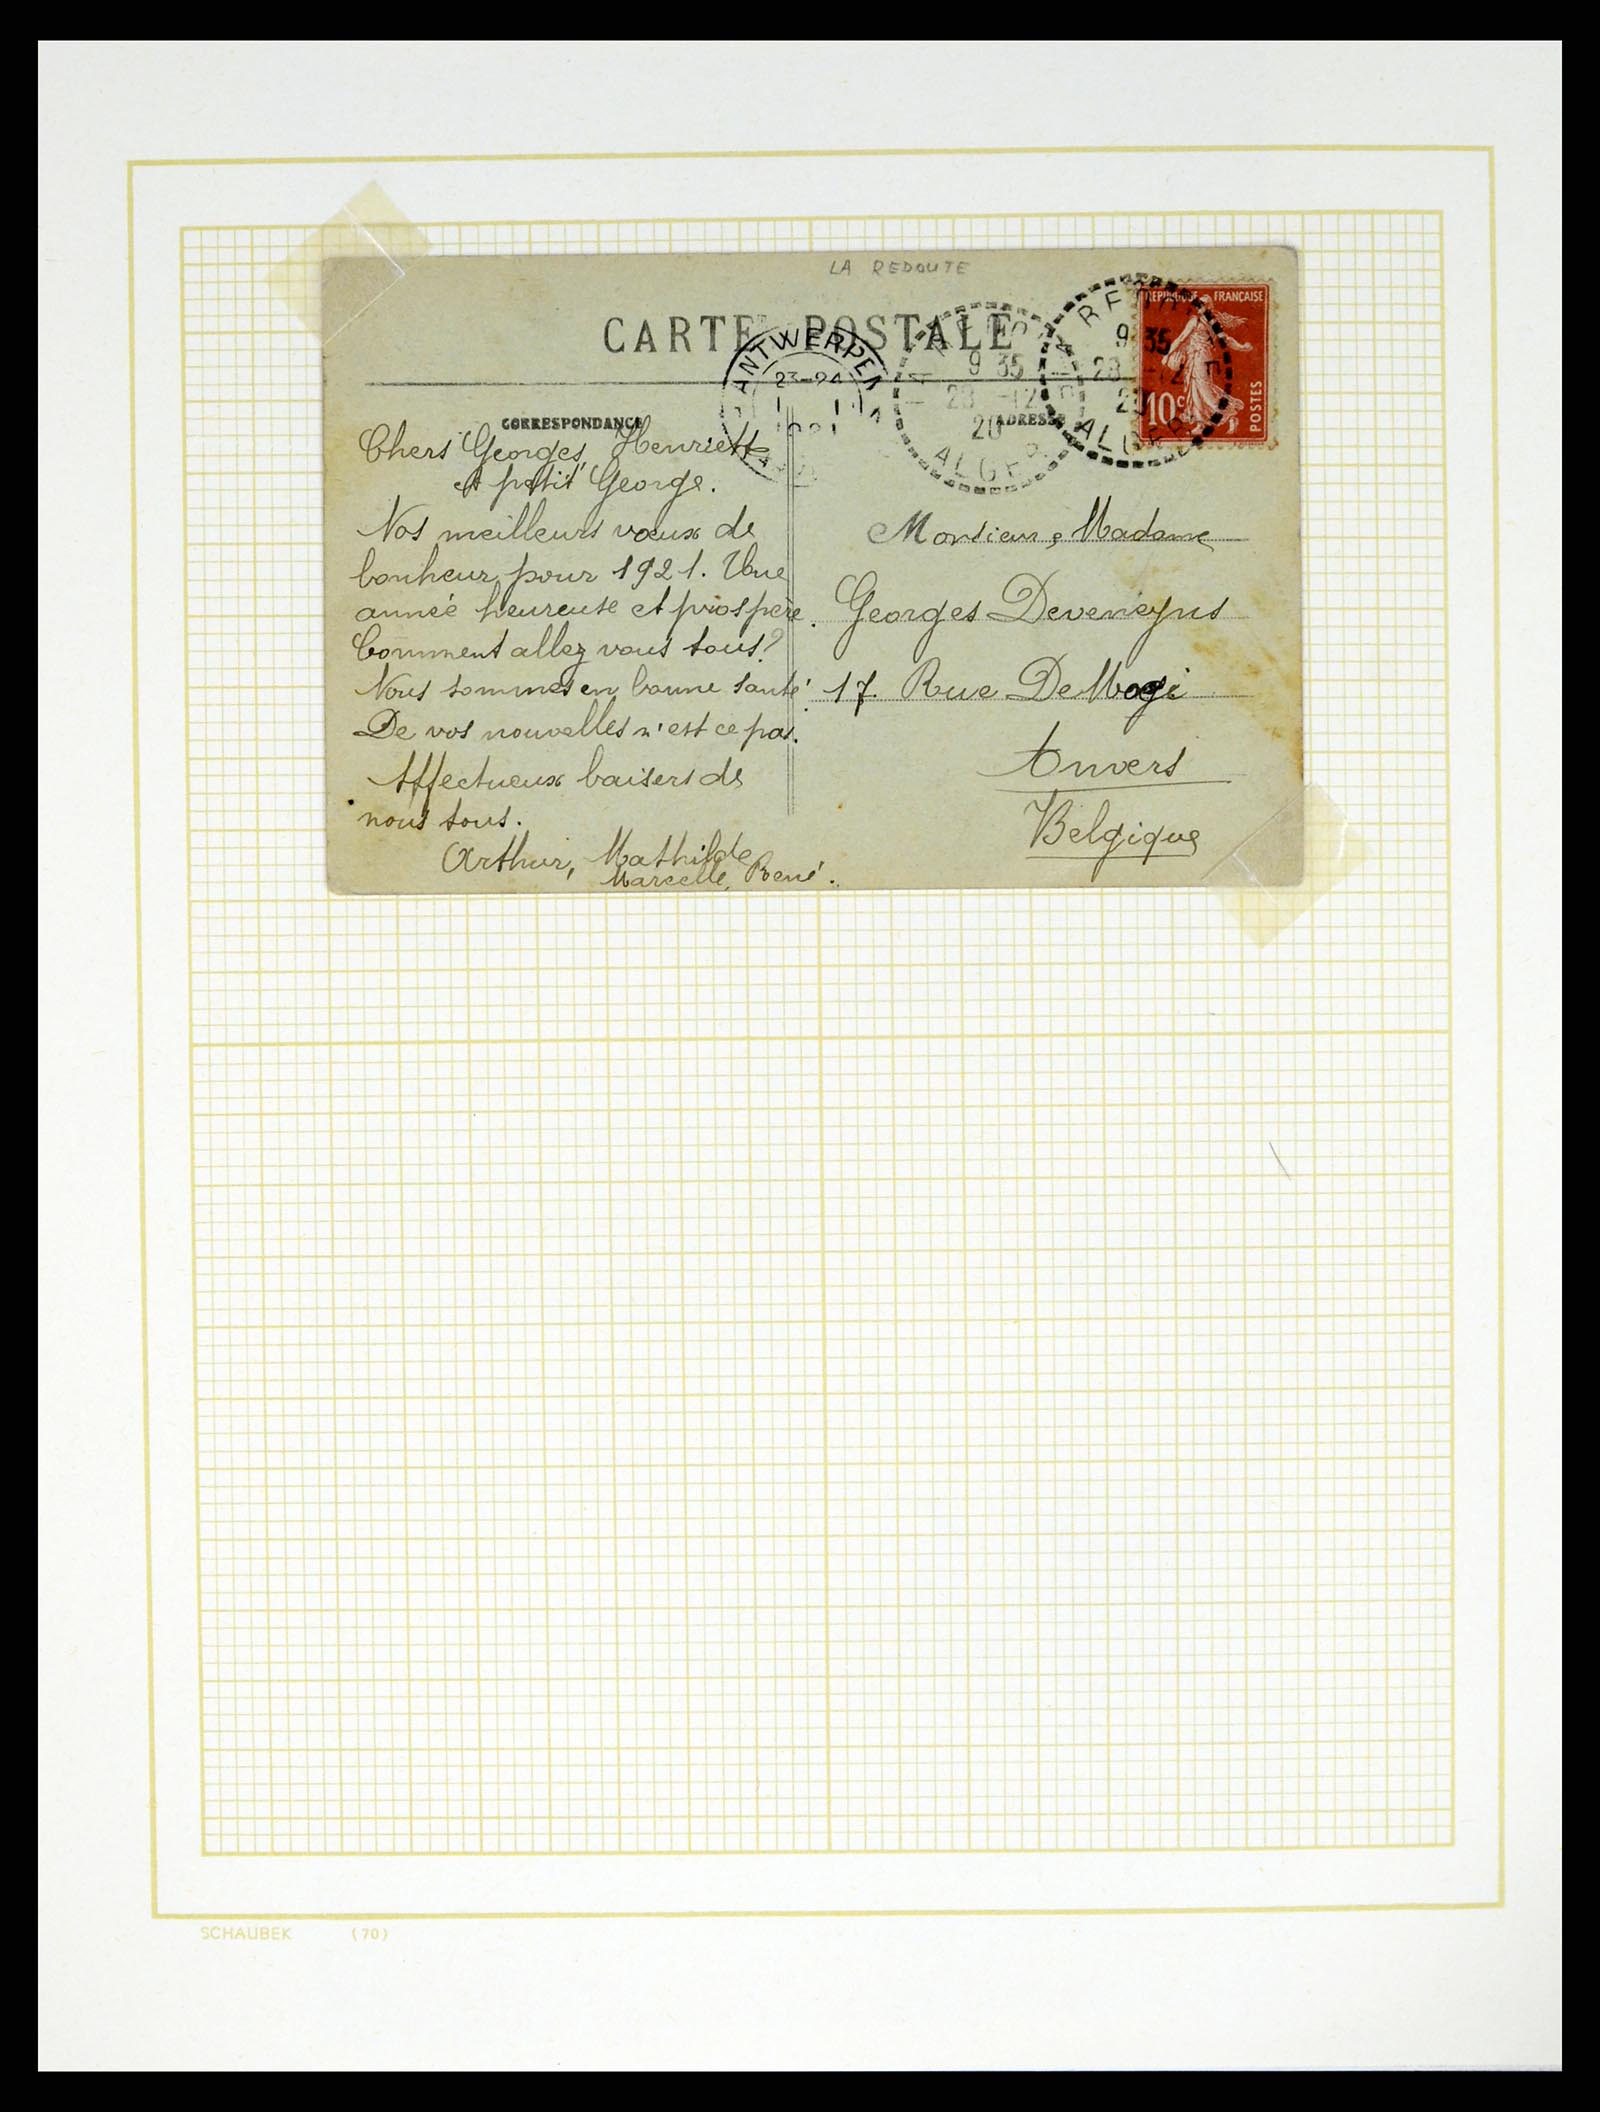 LA REDOUTE
CARTE POSTALE
REPUBLIQUE FRANÇAISE
10c
POSTES
LA REDOUTE
9 35
28 -12
20
ALGER
9 35
28 -12
20
ALGER
ANTWERPEN
23-24
1921
CORRESPONDANCE
ADRESSE
Chers Georges, Henriette
et petit George.
Nos meilleurs voeux de
bonheur pour 1921. Une
année heureuse et prospère.
Comment allez vous tous?
Nous sommes en bonne santé!
De vos nouvelles n'est ce pas.
Affectueux baisers de
nous tous.
Arthur, Mathilde
Marcelle, René.
Monsieur, Madame
Georges Deveneyns
17. Rue De
Anvers
Belgique
SCHAUBEK (70)